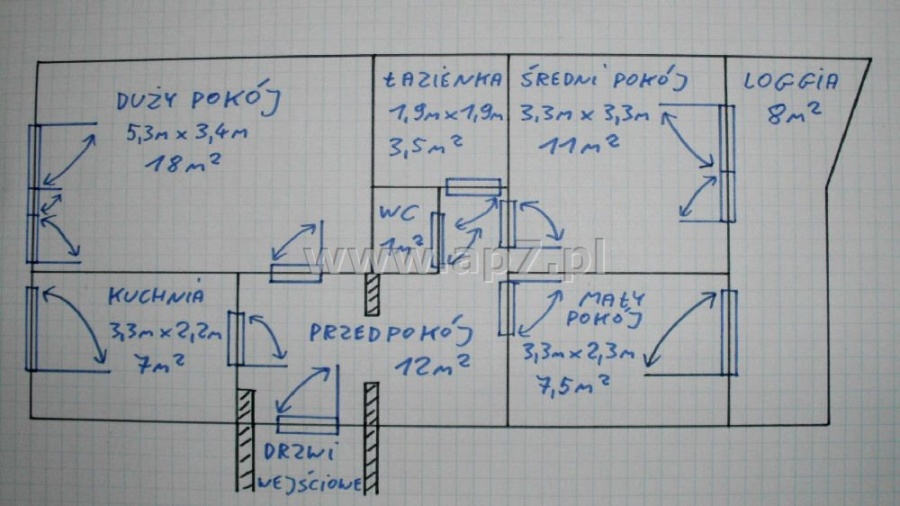 DUŻY POKÓJ
5,3m x 3,4m
18m²
ŁAZIENKA
1,9m x 1,9m
3,5m²
ŚREDNI POKÓJ
3,3m x 3,3m
11m²
LOGGIA
8m²
WC
1m²
www.apz.pl
KUCHNIA
3,3m x 2,2m
7m²
PRZEDPOKÓJ
12m²
MAŁY
POKÓJ
3,3m x 2,3m
7,5m²
DRZWI
WEJŚCIOWE